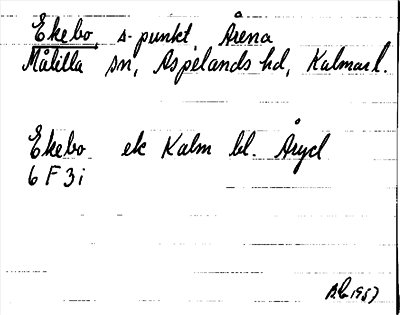 Ekebo, s-punkt, Årena
Målilla sn, Aspelands hd, Kalmar l.
Ekebo ek Kalm bl. Åryd
6 F 3 i
1957